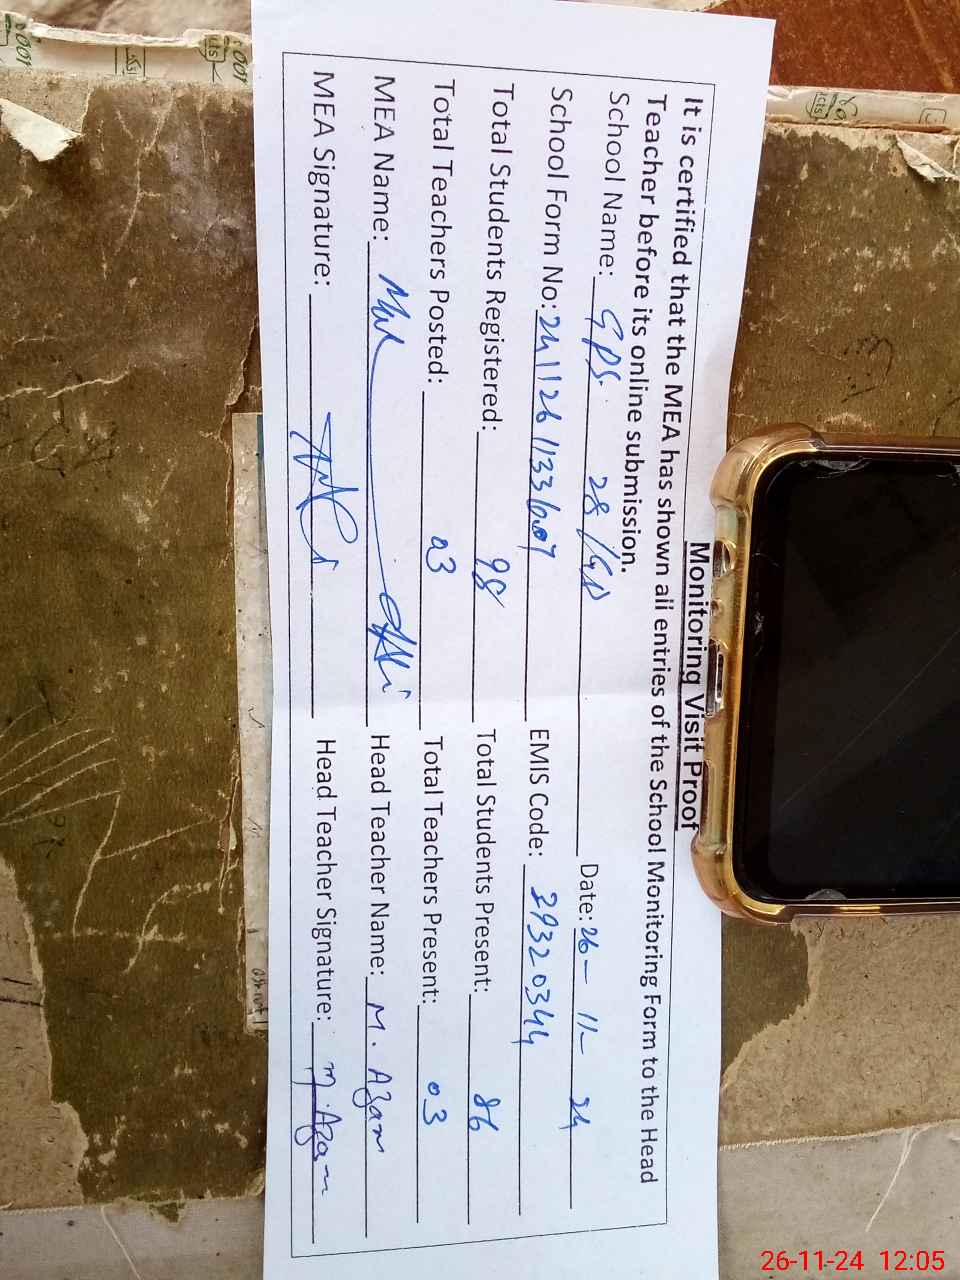 Monitoring Visit Proof
It is certified that the MEA has shown all entries of the School Monitoring Form to the Head
Teacher before its online submission.
School Name: GPS 28/GD Date: 26-11-24
School Form No: EMIS Code: 39320344
Total Students Registered: 98 Total Students Present: 86
Total Teachers Posted: 03 Total Teachers Present: 03
MEA Name: Head Teacher Name: M. Azam
MEA Signature: Head Teacher Signature: M. Azam
26-11-24 12:05